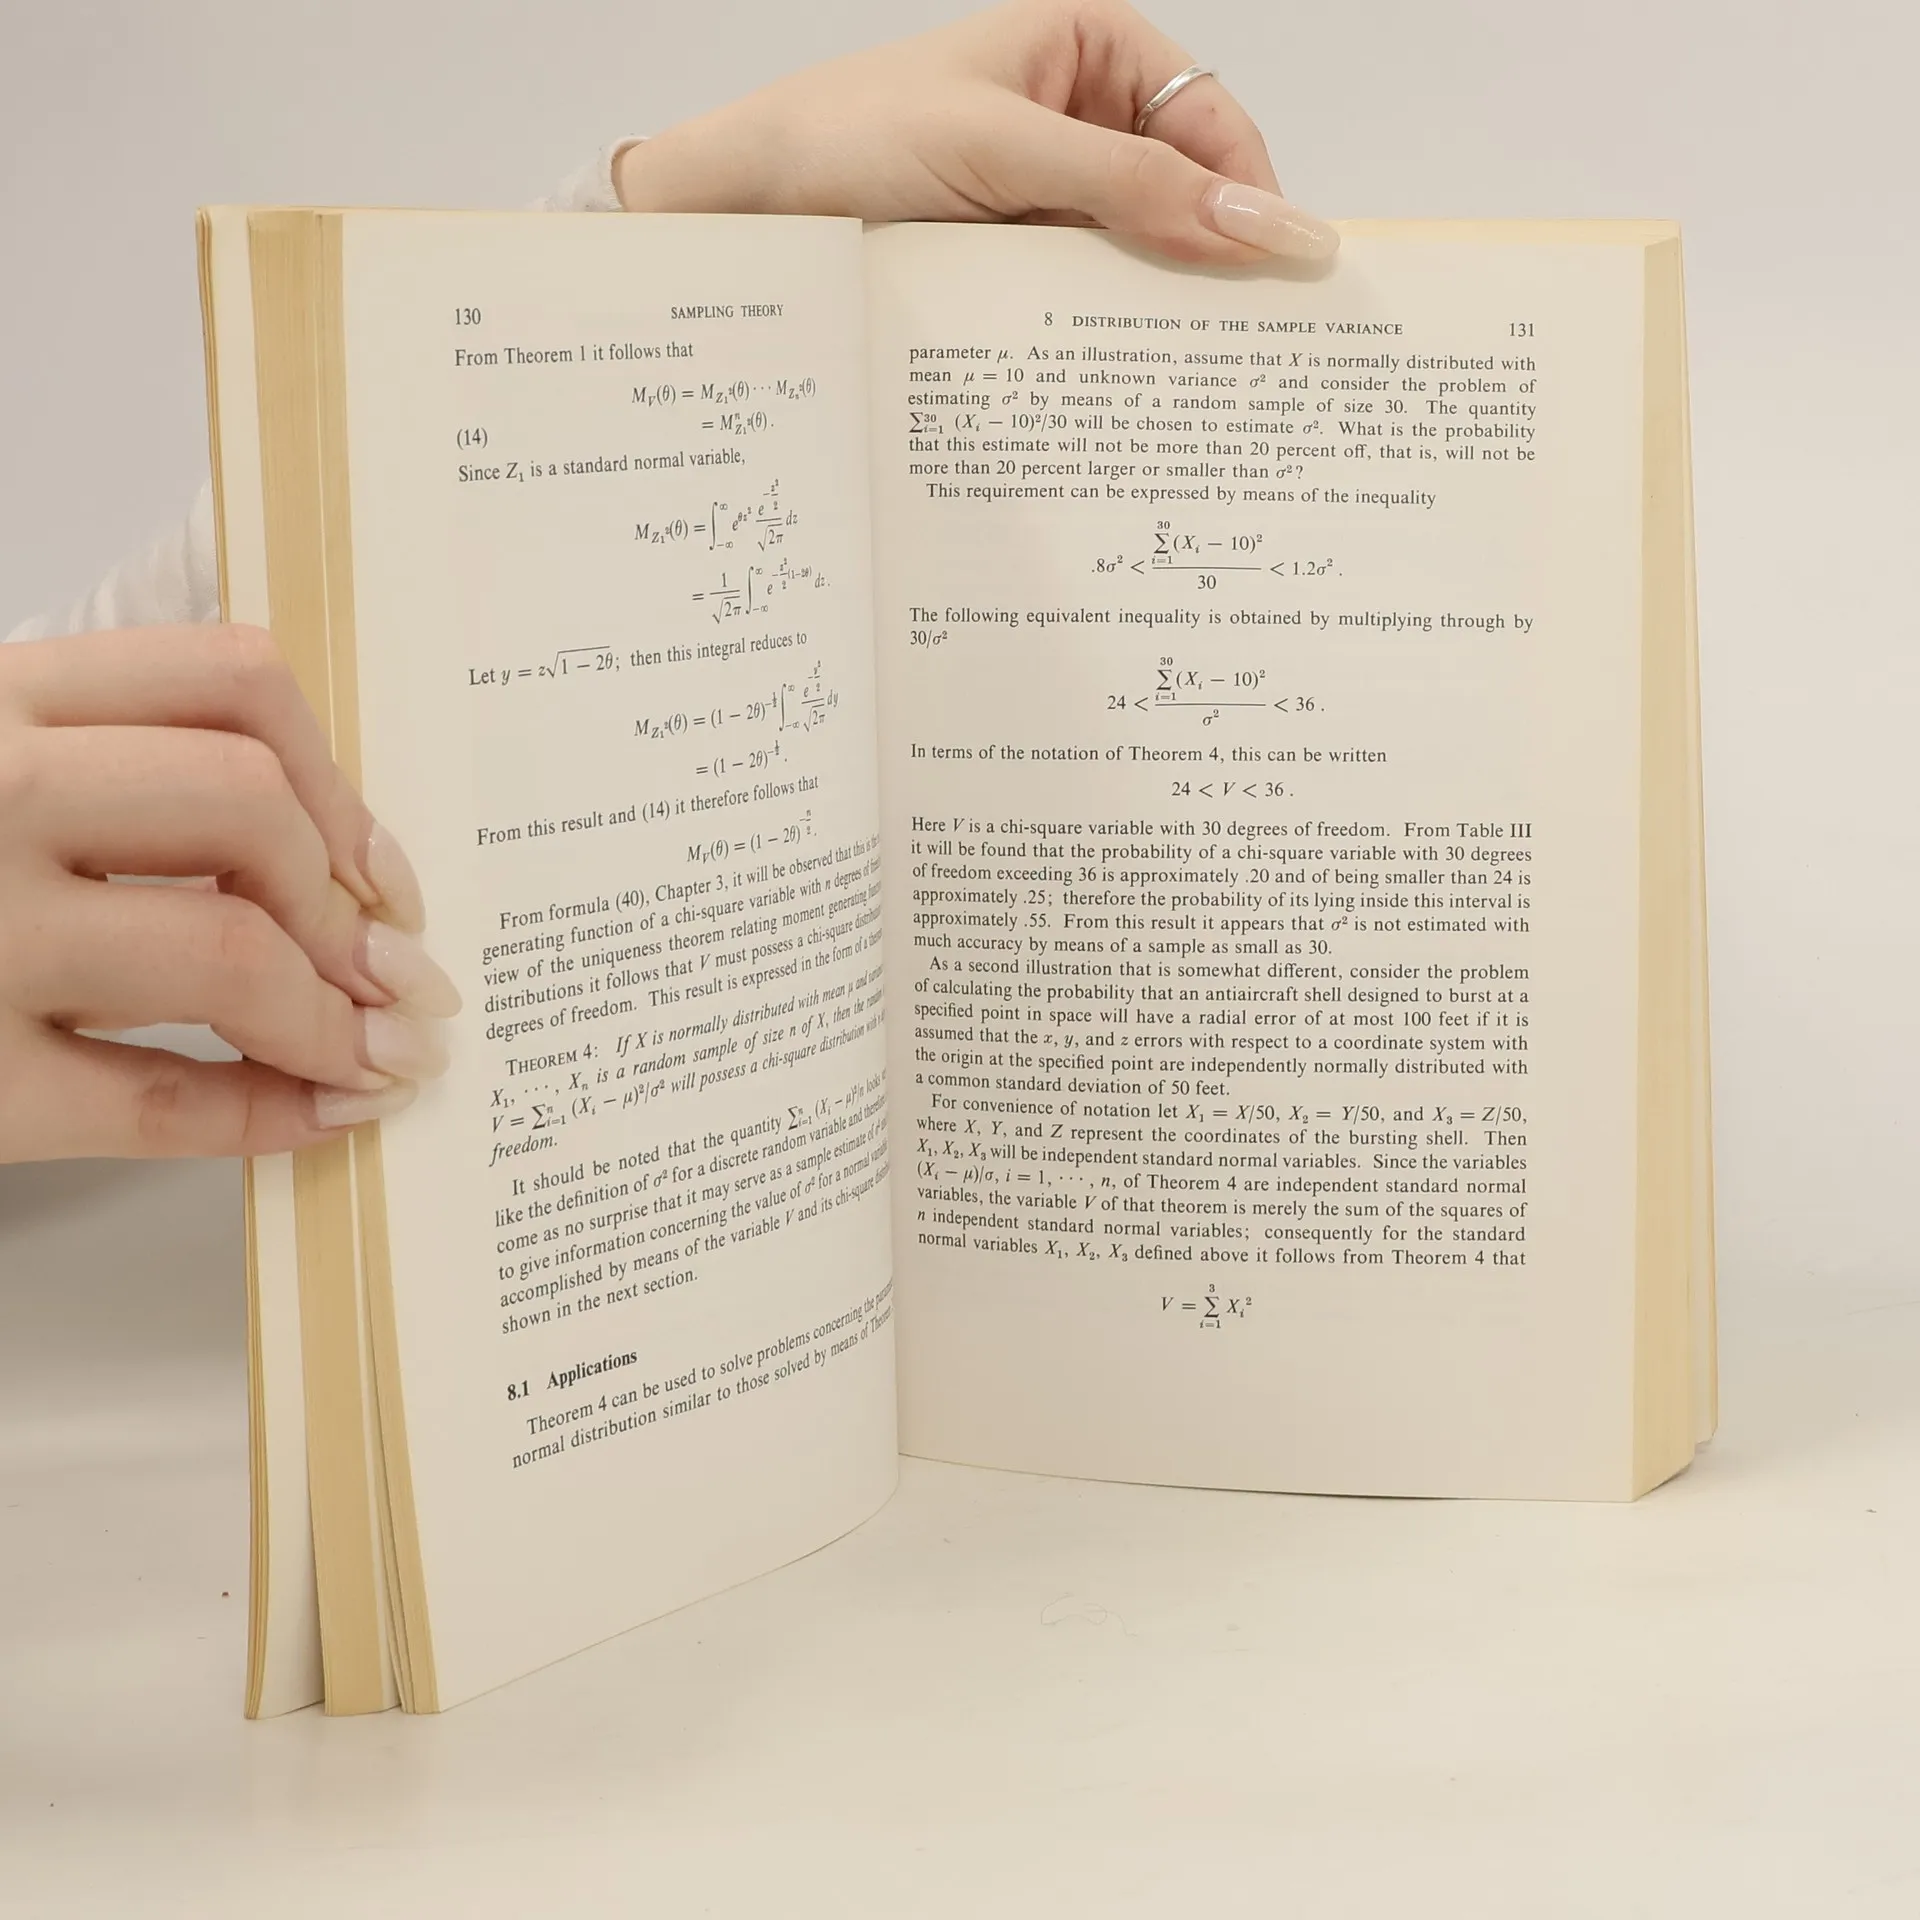 130 SAMPLING THEORY
From Theorem 1 it follows that
M_V(θ) = M_{Z₁²}(θ) ··· M_{Zₙ²}(θ)
(14) = Mⁿ_{Z₁²}(θ).
Since Z₁ is a standard normal variable,
M_{Z₁²}(θ) = ∫_{-∞}^{∞} e^{θz²} e^{-z²/2}/√2π dz
= 1/√2π ∫_{-∞}^{∞} e^{-z²/2(1-2θ)} dz.
Let y = z√1 − 2θ; then this integral reduces to
M_{Z₁²}(θ) = (1 − 2θ)^{-½} ∫_{-∞}^{∞} e^{-y²/2}/√2π dy
= (1 − 2θ)^{-½}.
From this result and (14) it therefore follows that
M_V(θ) = (1 − 2θ)^{-n/2}.
From formula (40), Chapter 3, it will be observed that this is the
generating function of a chi-square variable with n degrees of
view of the uniqueness theorem relating moment generating
distributions it follows that V must possess a chi-square
degrees of freedom. This result is expressed in the form of a
THEOREM 4: If X is normally distributed with mean μ and
X₁, ···, Xₙ is a random sample of size n of X, then the
V = Σⁿᵢ₌₁ (Xᵢ − μ)²/σ² will possess a chi-square distribution with
freedom.
It should be noted that the quantity Σⁿᵢ₌₁ (Xᵢ − μ)²/n looks
like the definition of σ² for a discrete random variable and
come as no surprise that it may serve as a sample estimate of σ²
to give information concerning the value of σ² for a normal
accomplished by means of the variable V and its chi-square
shown in the next section.
8.1 Applications
Theorem 4 can be used to solve problems concerning the
normal distribution similar to those solved by means of
8 DISTRIBUTION OF THE SAMPLE VARIANCE 131
parameter μ. As an illustration, assume that X is normally distributed with
mean μ = 10 and unknown variance σ² and consider the problem of
estimating σ² by means of a random sample of size 30. The quantity
Σ³⁰ᵢ₌₁ (Xᵢ − 10)²/30 will be chosen to estimate σ². What is the probability
that this estimate will not be more than 20 percent off, that is, will not be
more than 20 percent larger or smaller than σ²?
This requirement can be expressed by means of the inequality
.8σ² < Σ³⁰ᵢ₌₁(Xᵢ − 10)²/30 < 1.2σ².
The following equivalent inequality is obtained by multiplying through by
30/σ²
24 < Σ³⁰ᵢ₌₁(Xᵢ − 10)²/σ² < 36.
In terms of the notation of Theorem 4, this can be written
24 < V < 36.
Here V is a chi-square variable with 30 degrees of freedom. From Table III
it will be found that the probability of a chi-square variable with 30 degrees
of freedom exceeding 36 is approximately .20 and of being smaller than 24 is
approximately .25; therefore the probability of its lying inside this interval is
approximately .55. From this result it appears that σ² is not estimated with
much accuracy by means of a sample as small as 30.
As a second illustration that is somewhat different, consider the problem
of calculating the probability that an antiaircraft shell designed to burst at a
specified point in space will have a radial error of at most 100 feet if it is
assumed that the x, y, and z errors with respect to a coordinate system with
the origin at the specified point are independently normally distributed with
a common standard deviation of 50 feet.
For convenience of notation let X₁ = X/50, X₂ = Y/50, and X₃ = Z/50,
where X, Y, and Z represent the coordinates of the bursting shell. Then
X₁, X₂, X₃ will be independent standard normal variables. Since the variables
(Xᵢ − μ)/σ, i = 1, ···, n, of Theorem 4 are independent standard normal
variables, the variable V of that theorem is merely the sum of the squares of
n independent standard normal variables; consequently for the standard
normal variables X₁, X₂, X₃ defined above it follows from Theorem 4 that
V = Σ³ᵢ₌₁ Xᵢ²